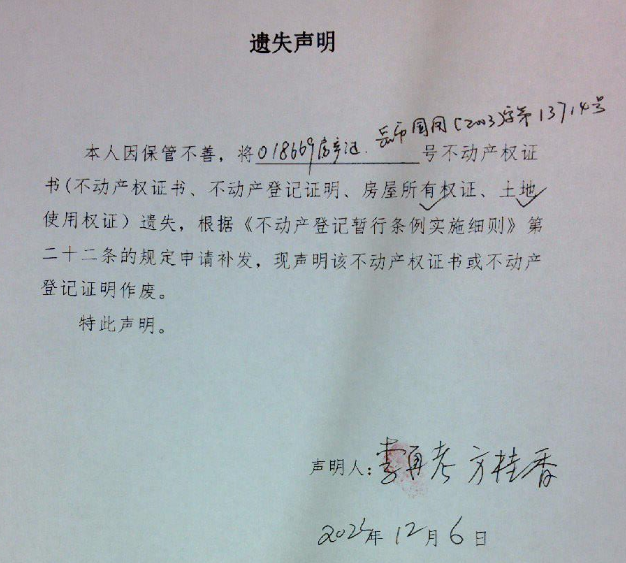 遗失声明
岳市国用(2003)字第13714号
本人因保管不善，将018669房产证.号不动产权证
书(不动产权证书、不动产登记证明、房屋所有权证、土地
使用权证）遗失，根据《不动产登记暂行条例实施细则》第
二十二条的规定申请补发，现声明该不动产权证书或不动产
登记证明作废。
特此声明。
声明人：李再老 方桂香
年12月6日